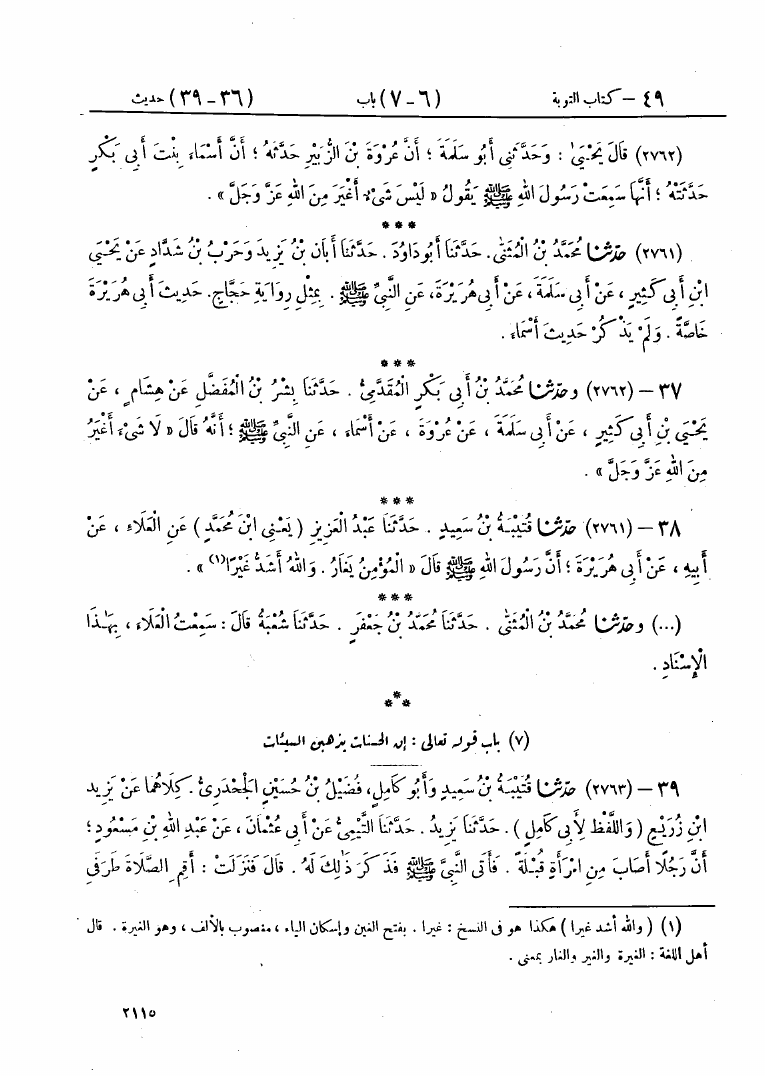 ٤٩ – كتاب التوبة (٦-٧) باب (٣٦-٣٩) حديث
(٢٧٦٢) قَالَ يَحْيَىٰ : وَحَدَّثَنِي أَبُو سَلَمَةَ ؛ أَنَّ عُرْوَةَ بْنَ الزُّبَيْرِ حَدَّثَهُ ؛ أَنَّ أَسْمَاءَ بِنْتَ أَبِي بَكْرٍ
حَدَّثَتْهُ ؛ أَنَّهَا سَمِعَتْ رَسُولَ اللهِ ﷺ يَقُولُ « لَيْسَ شَيْءٌ أَغْيَرَ مِنَ اللهِ عَزَّ وَجَلَّ » .
***
(٢٧٦١) حَدَّثَنَا مُحَمَّدُ بْنُ الْمُثَنَّىٰ. حَدَّثَنَا أَبُو دَاوُدَ . حَدَّثَنَا أَبَانُ بْنُ يَزِيدَ وَحَرْبُ بْنُ شَدَّادٍ عَنْ يَحْيَى
ابْنِ أَبِي كَثِيرٍ ، عَنْ أَبِي سَلَمَةَ ، عَنْ أَبِي هُرَيْرَةَ، عَنِ النَّبِيِّ ﷺ . بِمِثْلِ رِوَايَةِ حَجَّاجٍ. حَدِيثَ أَبِي هُرَيْرَةَ
خَاصَّةً . وَلَمْ يَذْكُرْ حَدِيثَ أَسْمَاءَ .
***
٣٧ – (٢٧٦٢) وحَدَّثَنَا مُحَمَّدُ بْنُ أَبِي بَكْرٍ الْمُقَدَّمِيُّ . حَدَّثَنَا بِشْرُ بْنُ الْمُفَضَّلِ عَنْ هِشَامٍ ، عَنْ
يَحْيَى بْنِ أَبِي كَثِيرٍ ، عَنْ أَبِي سَلَمَةَ ، عَنْ عُرْوَةَ ، عَنْ أَسْمَاءَ ، عَنِ النَّبِيِّ ﷺ ؛ أَنَّهُ قَالَ « لَا شَيْءَ أَغْيَرُ
مِنَ اللهِ عَزَّ وَجَلَّ » .
***
٣٨ – (٢٧٦١) حَدَّثَنَا قُتَيْبَةُ بْنُ سَعِيدٍ . حَدَّثَنَا عَبْدُ الْعَزِيزِ ( يَعْنِي ابْنَ مُحَمَّدٍ ) عَنِ الْعَلَاءِ ، عَنْ
أَبِيهِ ، عَنْ أَبِي هُرَيْرَةَ ؛ أَنَّ رَسُولَ اللهِ ﷺ قَالَ « الْمُؤْمِنُ يَغَارُ . وَاللهُ أَشَدُّ غَيْرًا(١) » .
***
(...) وحَدَّثَنَا مُحَمَّدُ بْنُ الْمُثَنَّىٰ . حَدَّثَنَا مُحَمَّدُ بْنُ جَعْفَرٍ . حَدَّثَنَا شُعْبَةُ قَالَ : سَمِعْتُ الْعَلَاءَ ، بِهَـٰذَا
الْإِسْنَادِ .
***
(٧) باب قوله تعالى : إن الحسنات يذهبن السيئات
٣٩ – (٢٧٦٣) حَدَّثَنَا قُتَيْبَةُ بْنُ سَعِيدٍ وَأَبُو كَامِلٍ، فُضَيْلُ بْنُ حُسَيْنٍ الْجَحْدَرِيُّ . كِلَاهُمَا عَنْ يَزِيدَ
ابْنِ زُرَيْعٍ ( وَاللَّفْظُ لِأَبِي كَامِلٍ ) . حَدَّثَنَا يَزِيدُ . حَدَّثَنَا التَّيْمِيُّ عَنْ أَبِي عُثْمَانَ ، عَنْ عَبْدِ اللهِ بْنِ مَسْعُودٍ ؛
أَنَّ رَجُلًا أَصَابَ مِنِ امْرَأَةٍ قُبْلَةً . فَأَتَى النَّبِيَّ ﷺ فَذَكَرَ ذَٰلِكَ لَهُ . قَالَ فَنَزَلَتْ : أَقِمِ الصَّلَاةَ طَرَفَيِ
(١) ( والله أشد غيرا ) هكذا هو في النسخ : غيرا . بفتح الغين وإسكان الياء ، منصوب بالألف ، وهو الغيرة . قال
أهل اللغة : الغيرة والغير والغار بمعنى .
٢١١٥